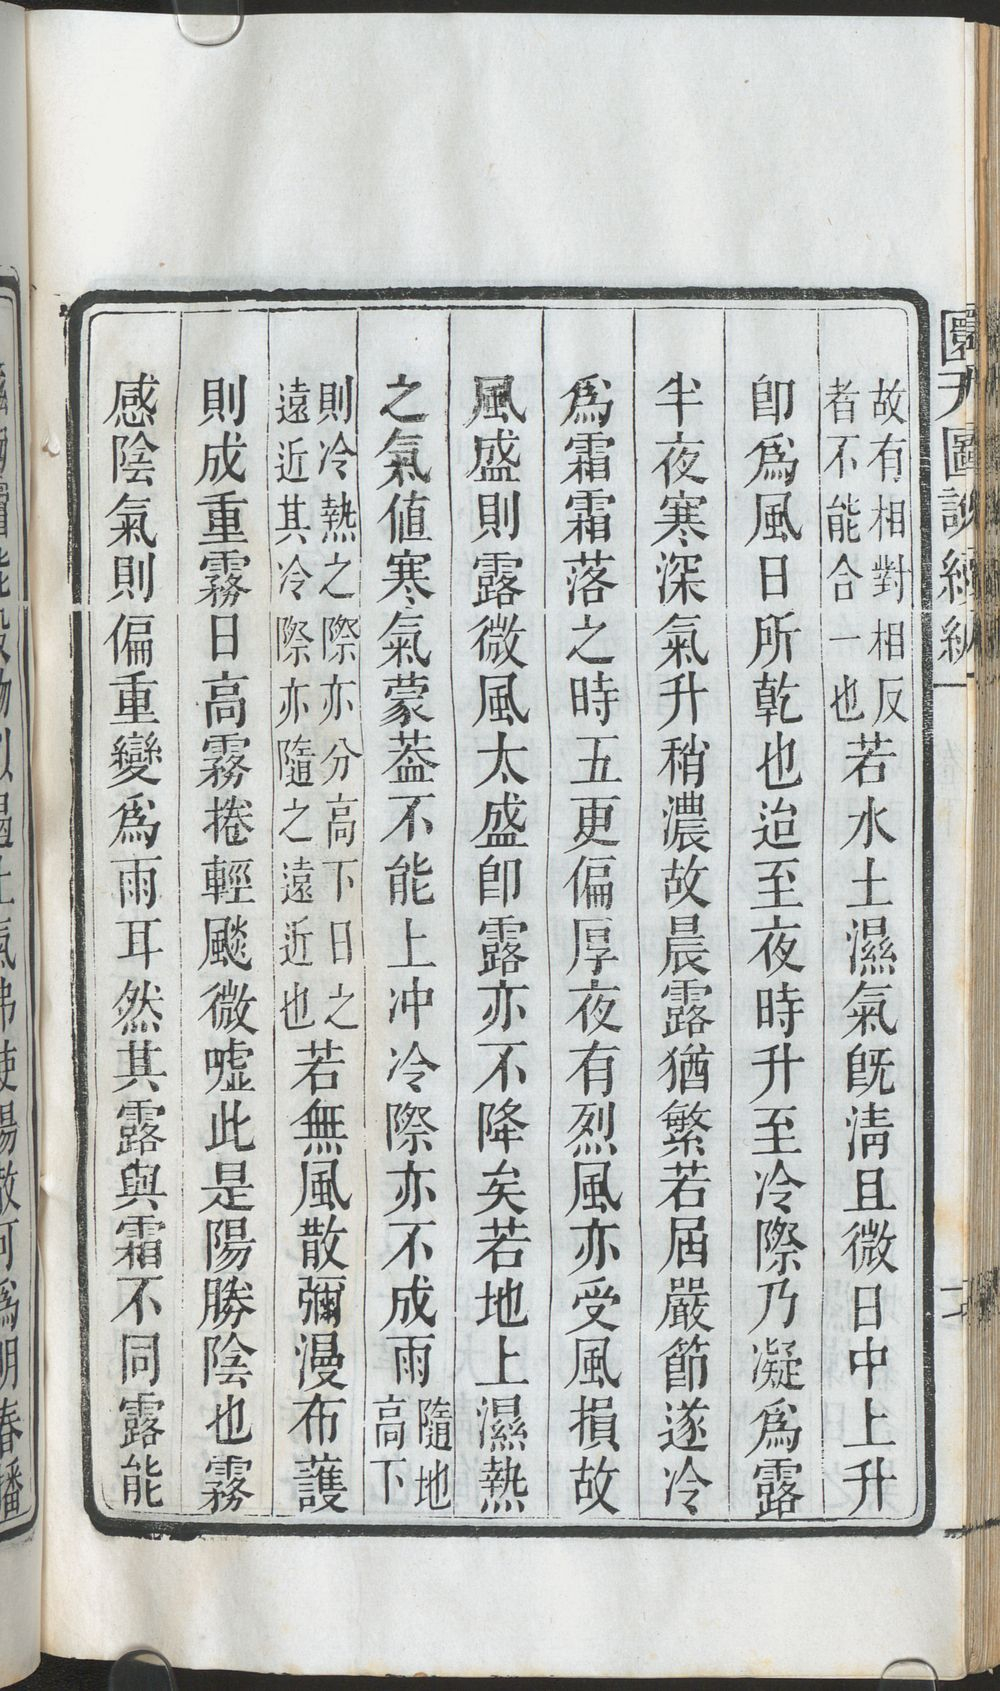 故有相對相反
者不能合一也若水土濕氣旣淸且微日中上升
卽爲風日所乾也迨至夜時升至冷際乃凝爲露
半夜寒深氣升稍濃故晨露猶繁若屆嚴節遂冷
爲霜霜落之時五更偏厚夜有烈風亦受風損故
風盛則露微風太盛卽露亦不降矣若地上濕熱
之氣値寒氣蒙葢不能上冲冷際亦不成雨隨地
高下
則冷熱之際亦分高下日之
遠近其冷際亦隨之遠近也若無風散彌漫布護
則成重霧日高霧捲輕颷微噓此是陽勝陰也霧
感陰氣則偏重變爲雨耳然其露與霜不同露能